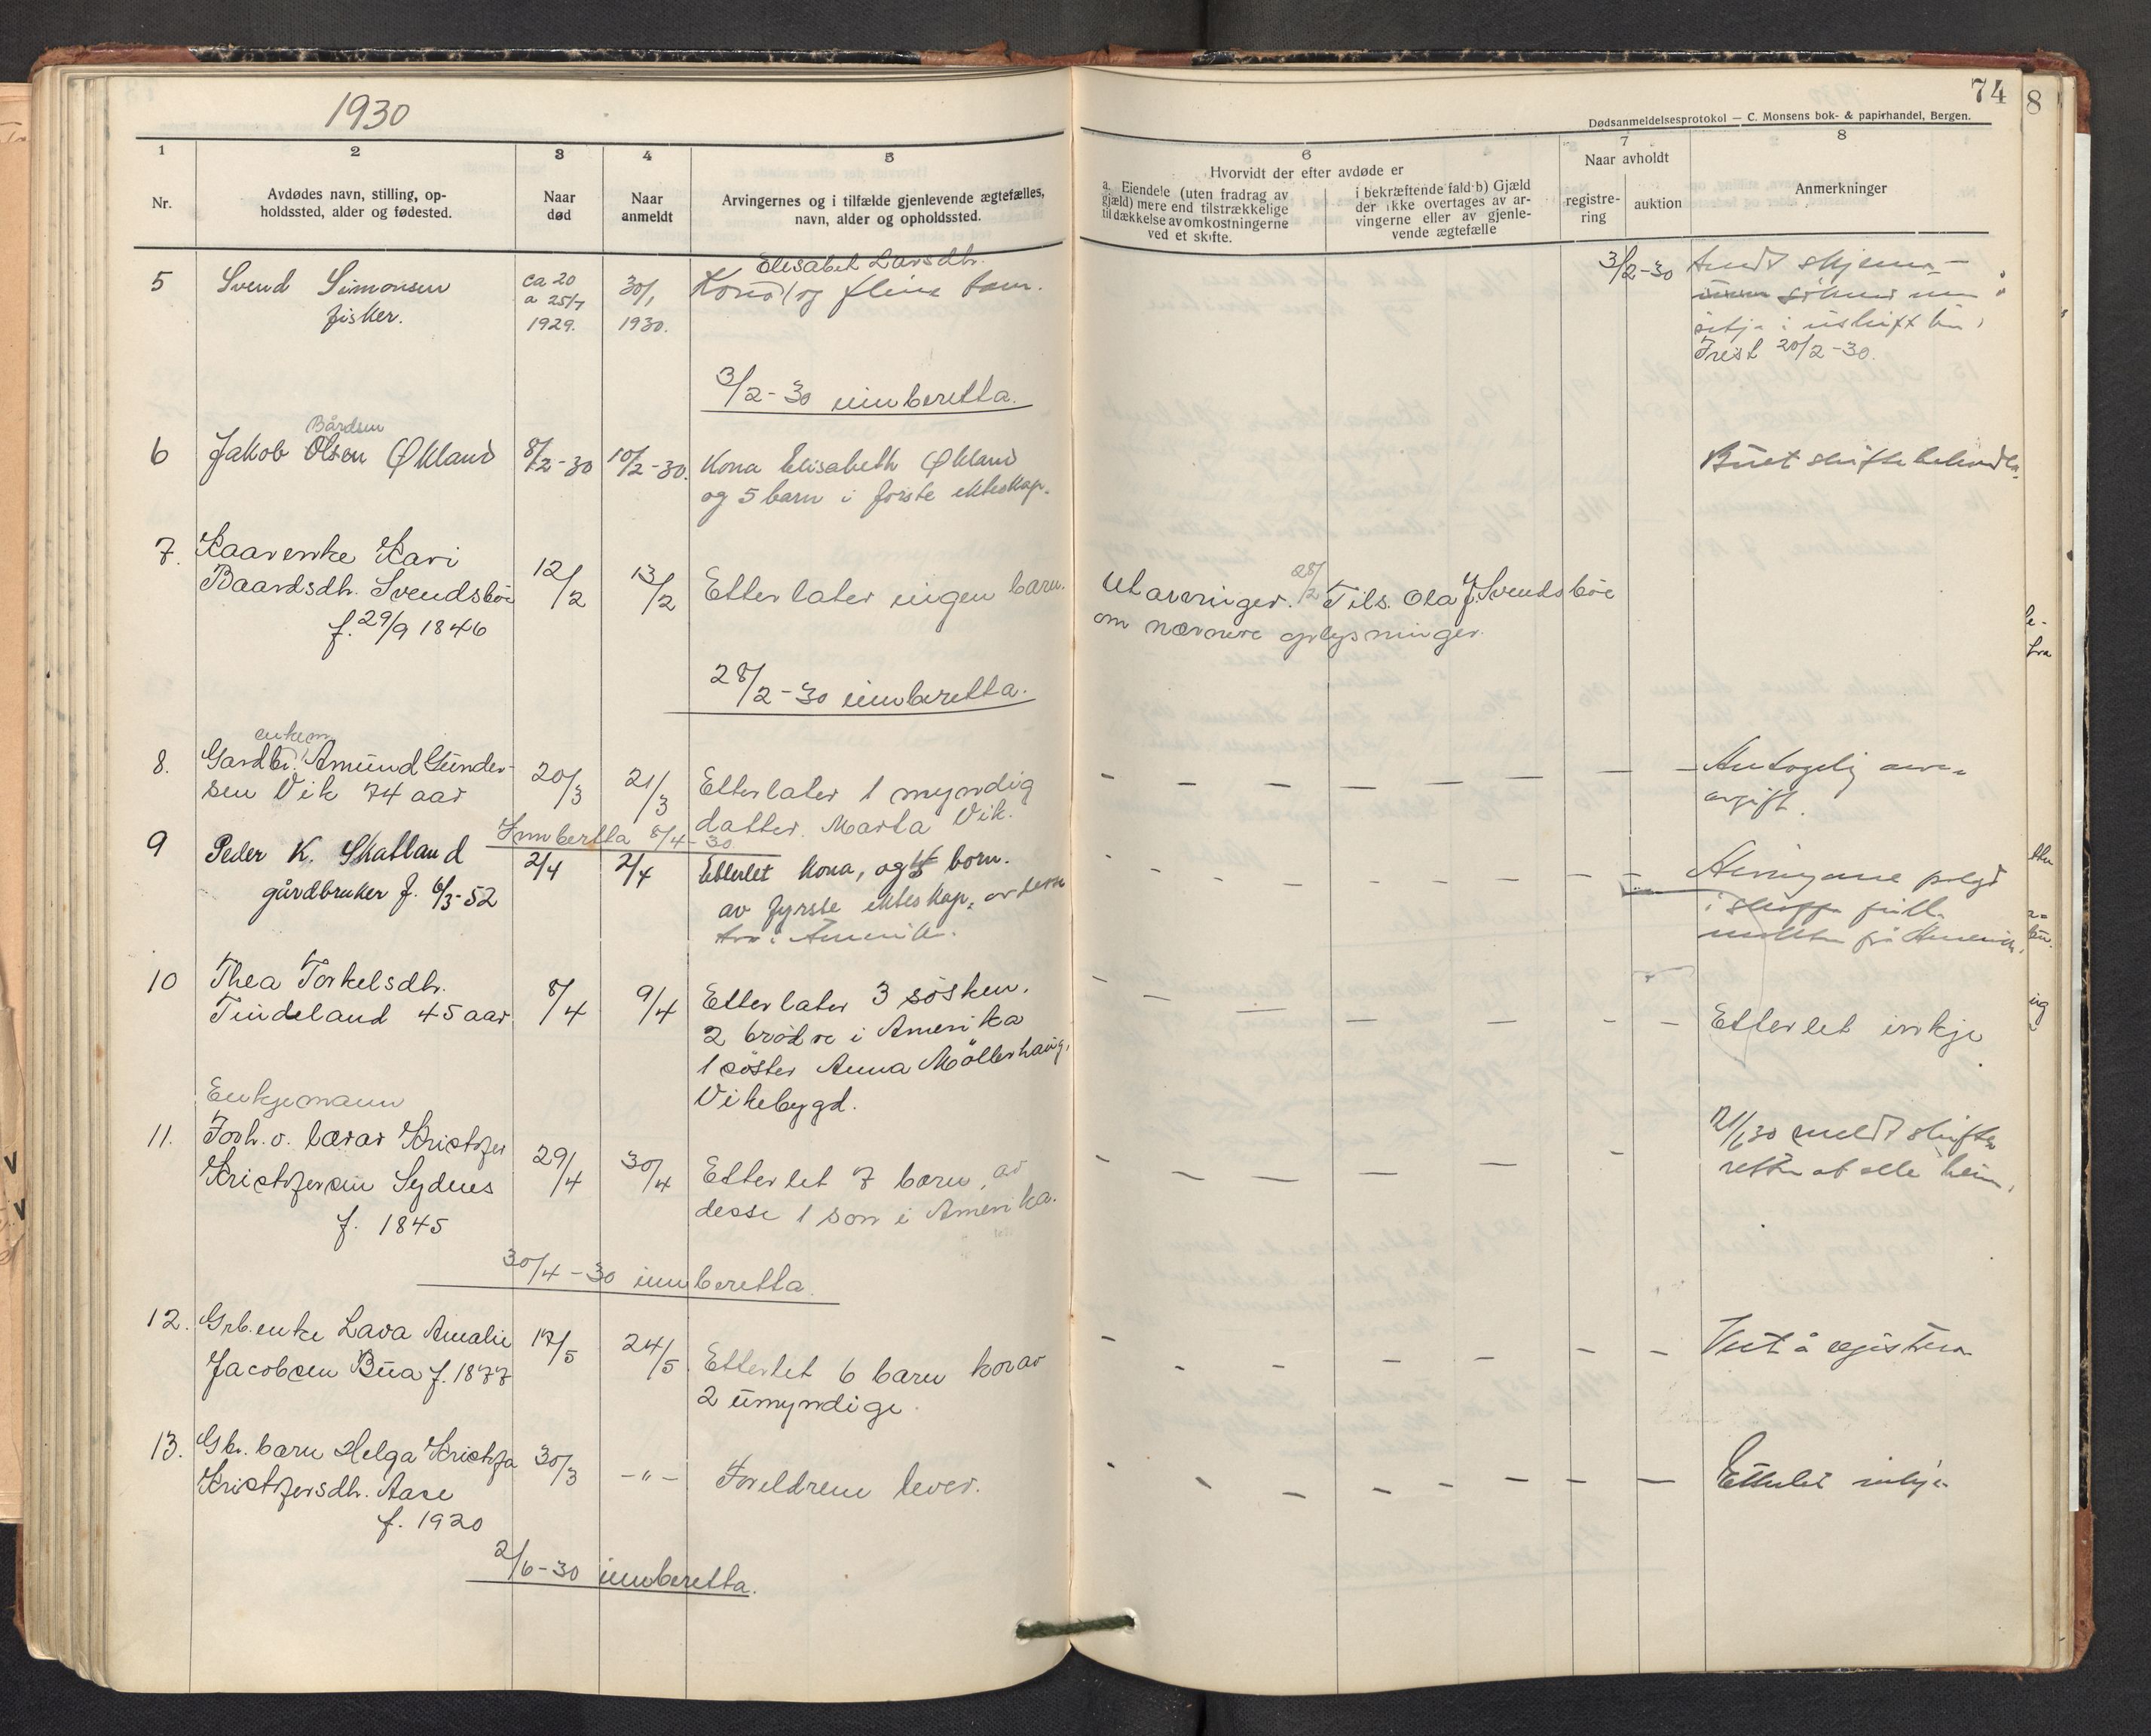 1930
74
8
Dødsanmeldelsesprotokol — C. Monsens bok- & papirhandel, Bergen.
1
2
3
4
5
6
7
8
Nr.
Avdødes navn, stilling, op-
holdssted, alder og fødested.
Naar
død
Naar
anmeldt
Arvingernes og i tilfælde gjenlevende ægtefælles,
navn, alder og opholdssted.
Hvorvidt der efter avdøde er
a. Eiendele (uten fradrag av
gjæld) mere end tilstrækkelige
til dækkelse av omkostningerne
ved et skifte.
i bekræftende fald b) Gjæld
der ikke overtages av ar-
vingerne eller av gjenle-
vende ægtefælle
Naar avholdt
registre-
ring
auktion
Anmerkninger
5
Svend Simonsen
fisker.
ca 20
a 25/7
1929.
30/1
1930.
Elisabet Larsdtr.
Kona og fleire born.
3/2-30
Sendt skjema
setja i uskift bu
Frist 20/2-30.
3/2-30 innberetta.
6
Bårdsen
Jakob Olsen Økland
8/2-30
10/2-30.
Kona Elisabeth Økland
og 5 barn i første ekteskap.
Buet skiftebehandla
7.
Kaarenke Kari
Baardsdtr. Svendsbøe
f. 29/9 1846
12/2
13/2
Etterlater ingen barn.
Utarvinger. 28/2 Tils. Ola J. Svendsbøe
om nærmere oplysninger.
28/2-30 innberetta.
8.
enkem
Gardbr. Amund Gunder-
sen Vik 74 aar
20/3
21/3
Etterlater 1 myndig
datter. Marta Vik.
Antagelig arve-
avgift.
Innberetta 8/4-30
9
Peder K. Skatland
gårdbruker f. 6/3-52
2/4
2/4
Etterlet kona, og 4 born.
av fyrste ekteskap, av desse
tre i Amerika.
Arvingane
i
fr Amerika
10
Thea Torkelsdtr.
Tindeland 45 aar
8/4
9/4
Etterlater 3 søsken.
2 brødre i Amerika
1 søster Anna Möllerhaug,
Vikebygd.
Etterlet inkje
Enkjemann
11.
Forh.v. lærar Kristofer
Kristofersen Sydnes
f. 1845
29/4
30/4
Etterlet 7 barn, av
desse 1 son i Amerika.
meldt skifte
retten at alle
30/4-30 innberetta.
12.
Grb.enke Lava Amalie
Jacobsen Bua f. 1877
17/5
24/5
Etterlet 6 barn korav
2 umyndige.
Vert å registrera
13.
Gbr. barn Helga Kristofa
Kristofersdtr. Aase
f. 1920
30/3
-"-
Foreldrene lever.
Etterlet inkje
2/6-30 innberetta.